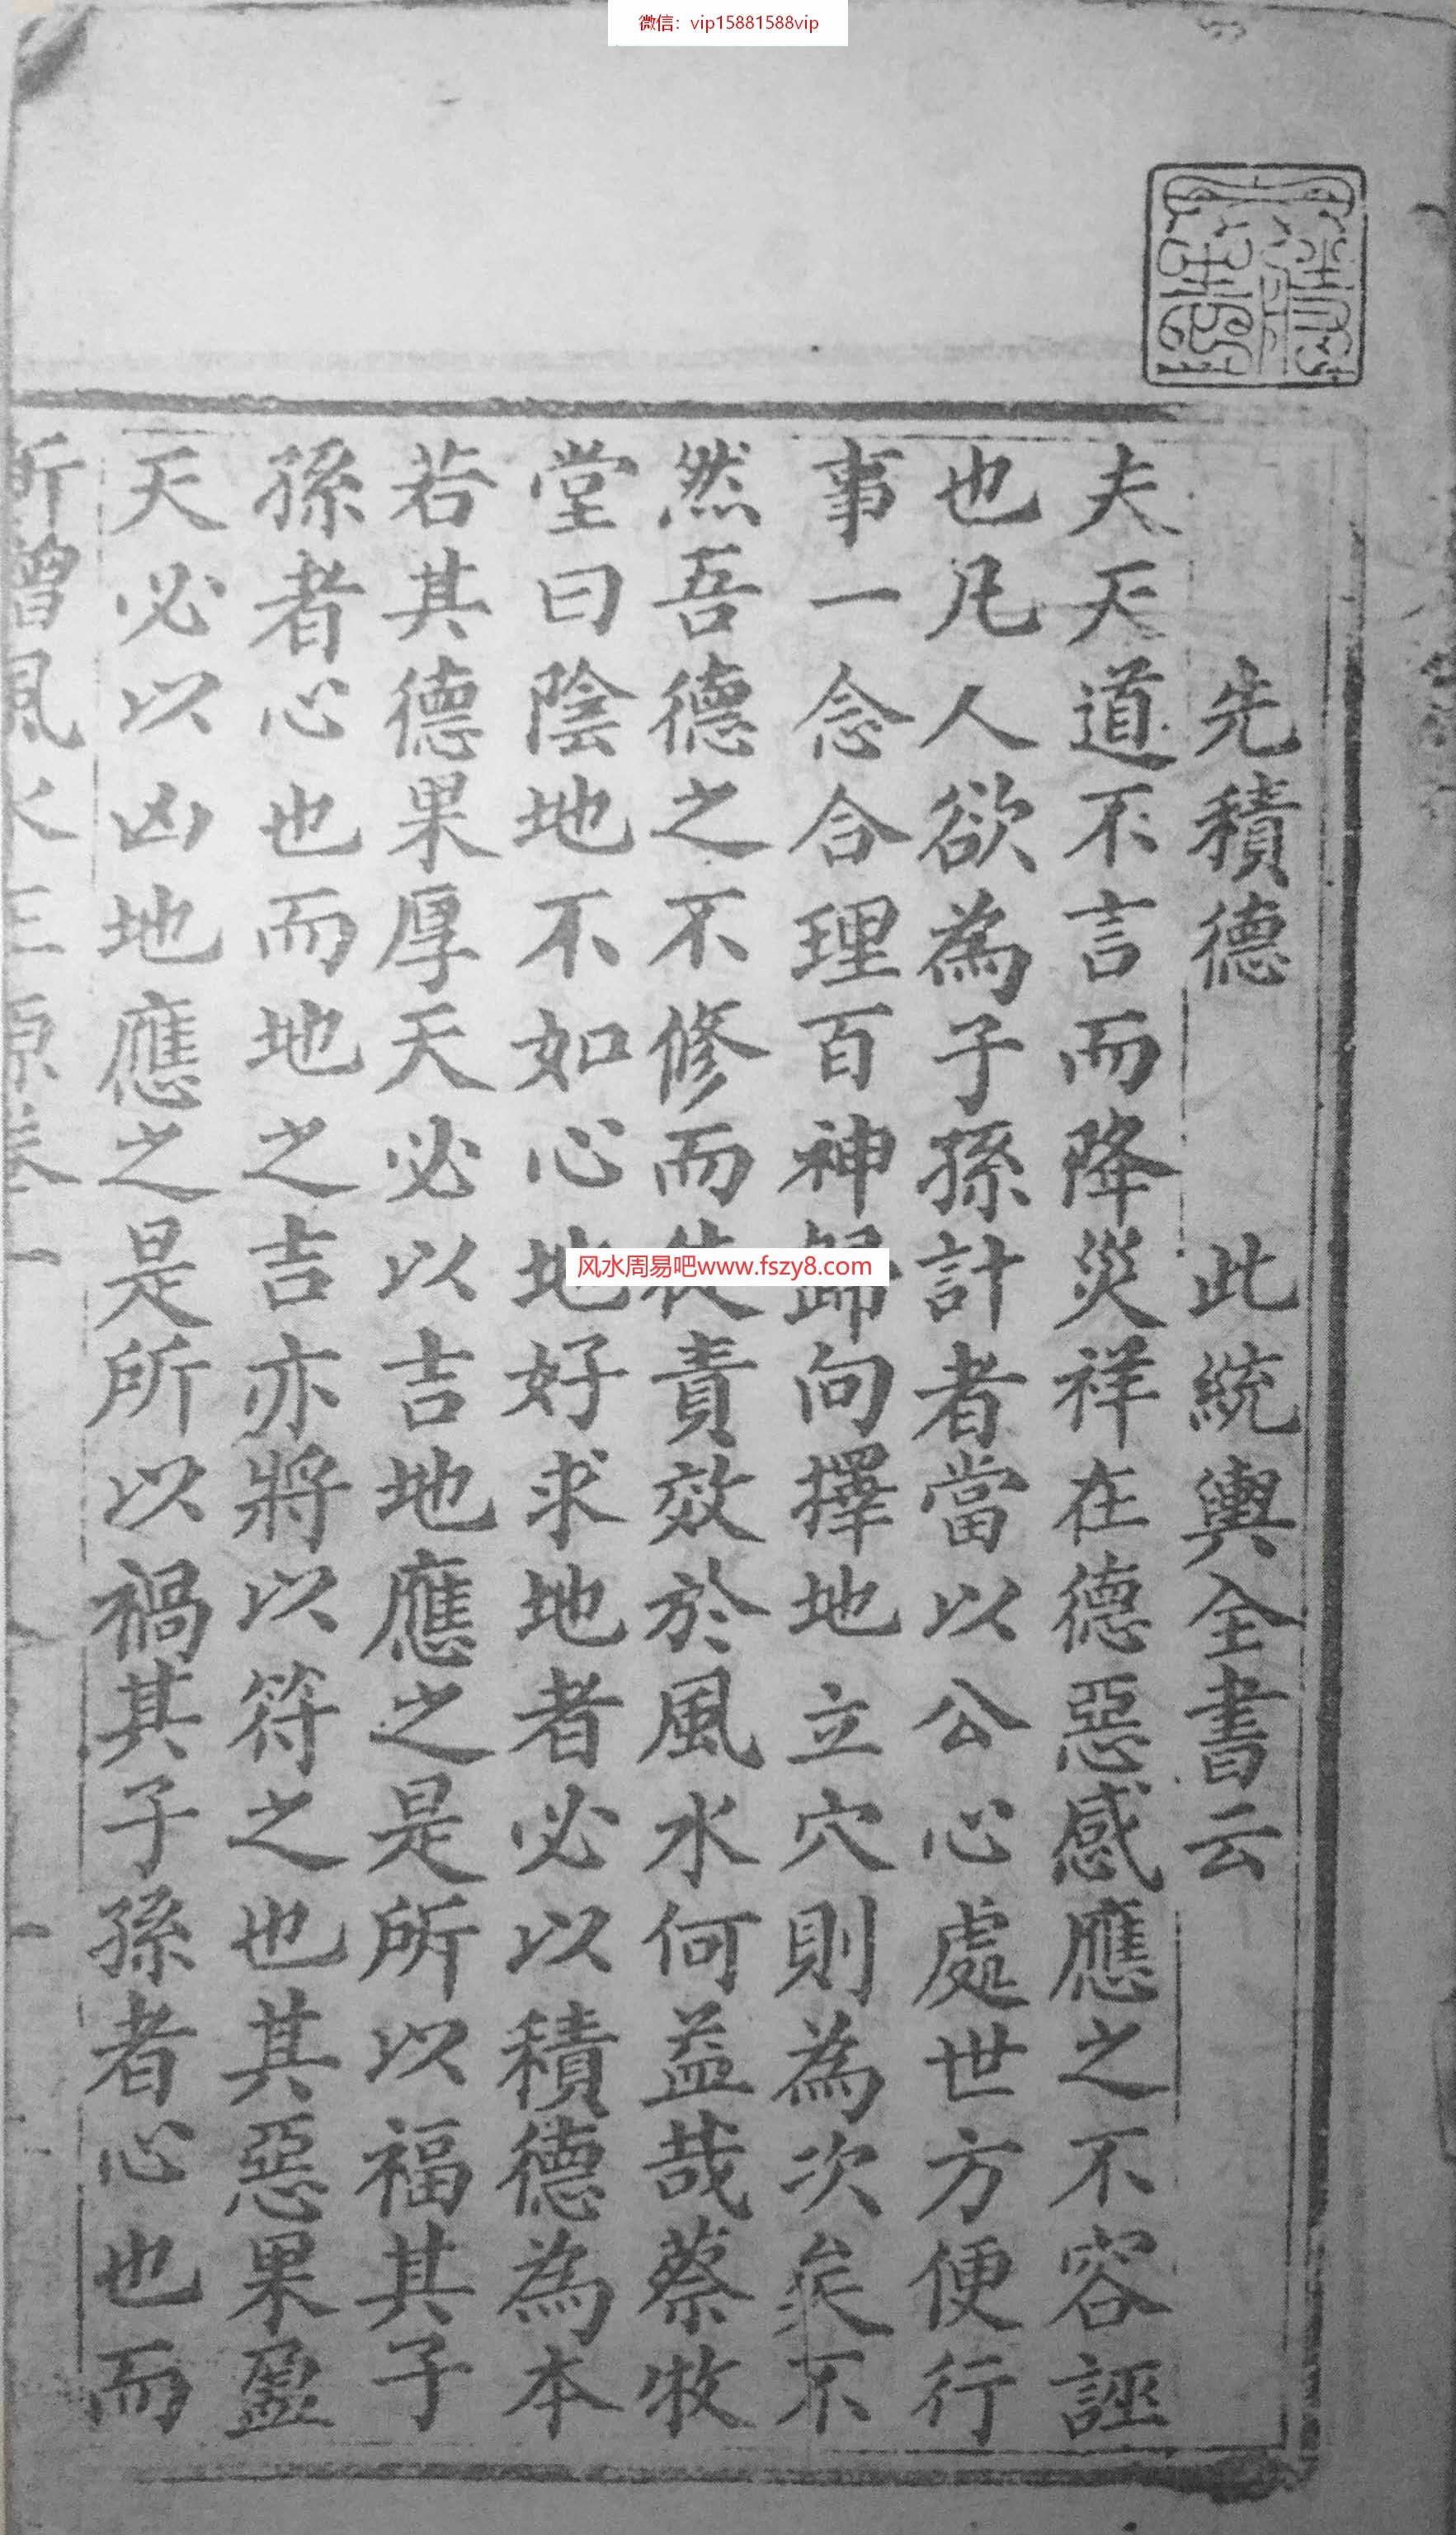 微信：vip15881588vip
先積德 此統輿全書云
夫天道不言而降災祥在德惡感應之不容誣
也凡人欲為子孫計者當以公心處世方便行
事一念合理百神歸向擇地立穴則為次矣不
然吾德之不修而徒責效於風水何益哉蔡牧
堂曰陰地不如心地好求地者必以積德為本
若其德果厚天必以吉地應之是所以福其子
孫者心也而地之吉亦將以符之也其惡果盈
天必以凶地應之是所以禍其子孫者心也而
風水 原卷一
风水周易吧www.fszy8.com